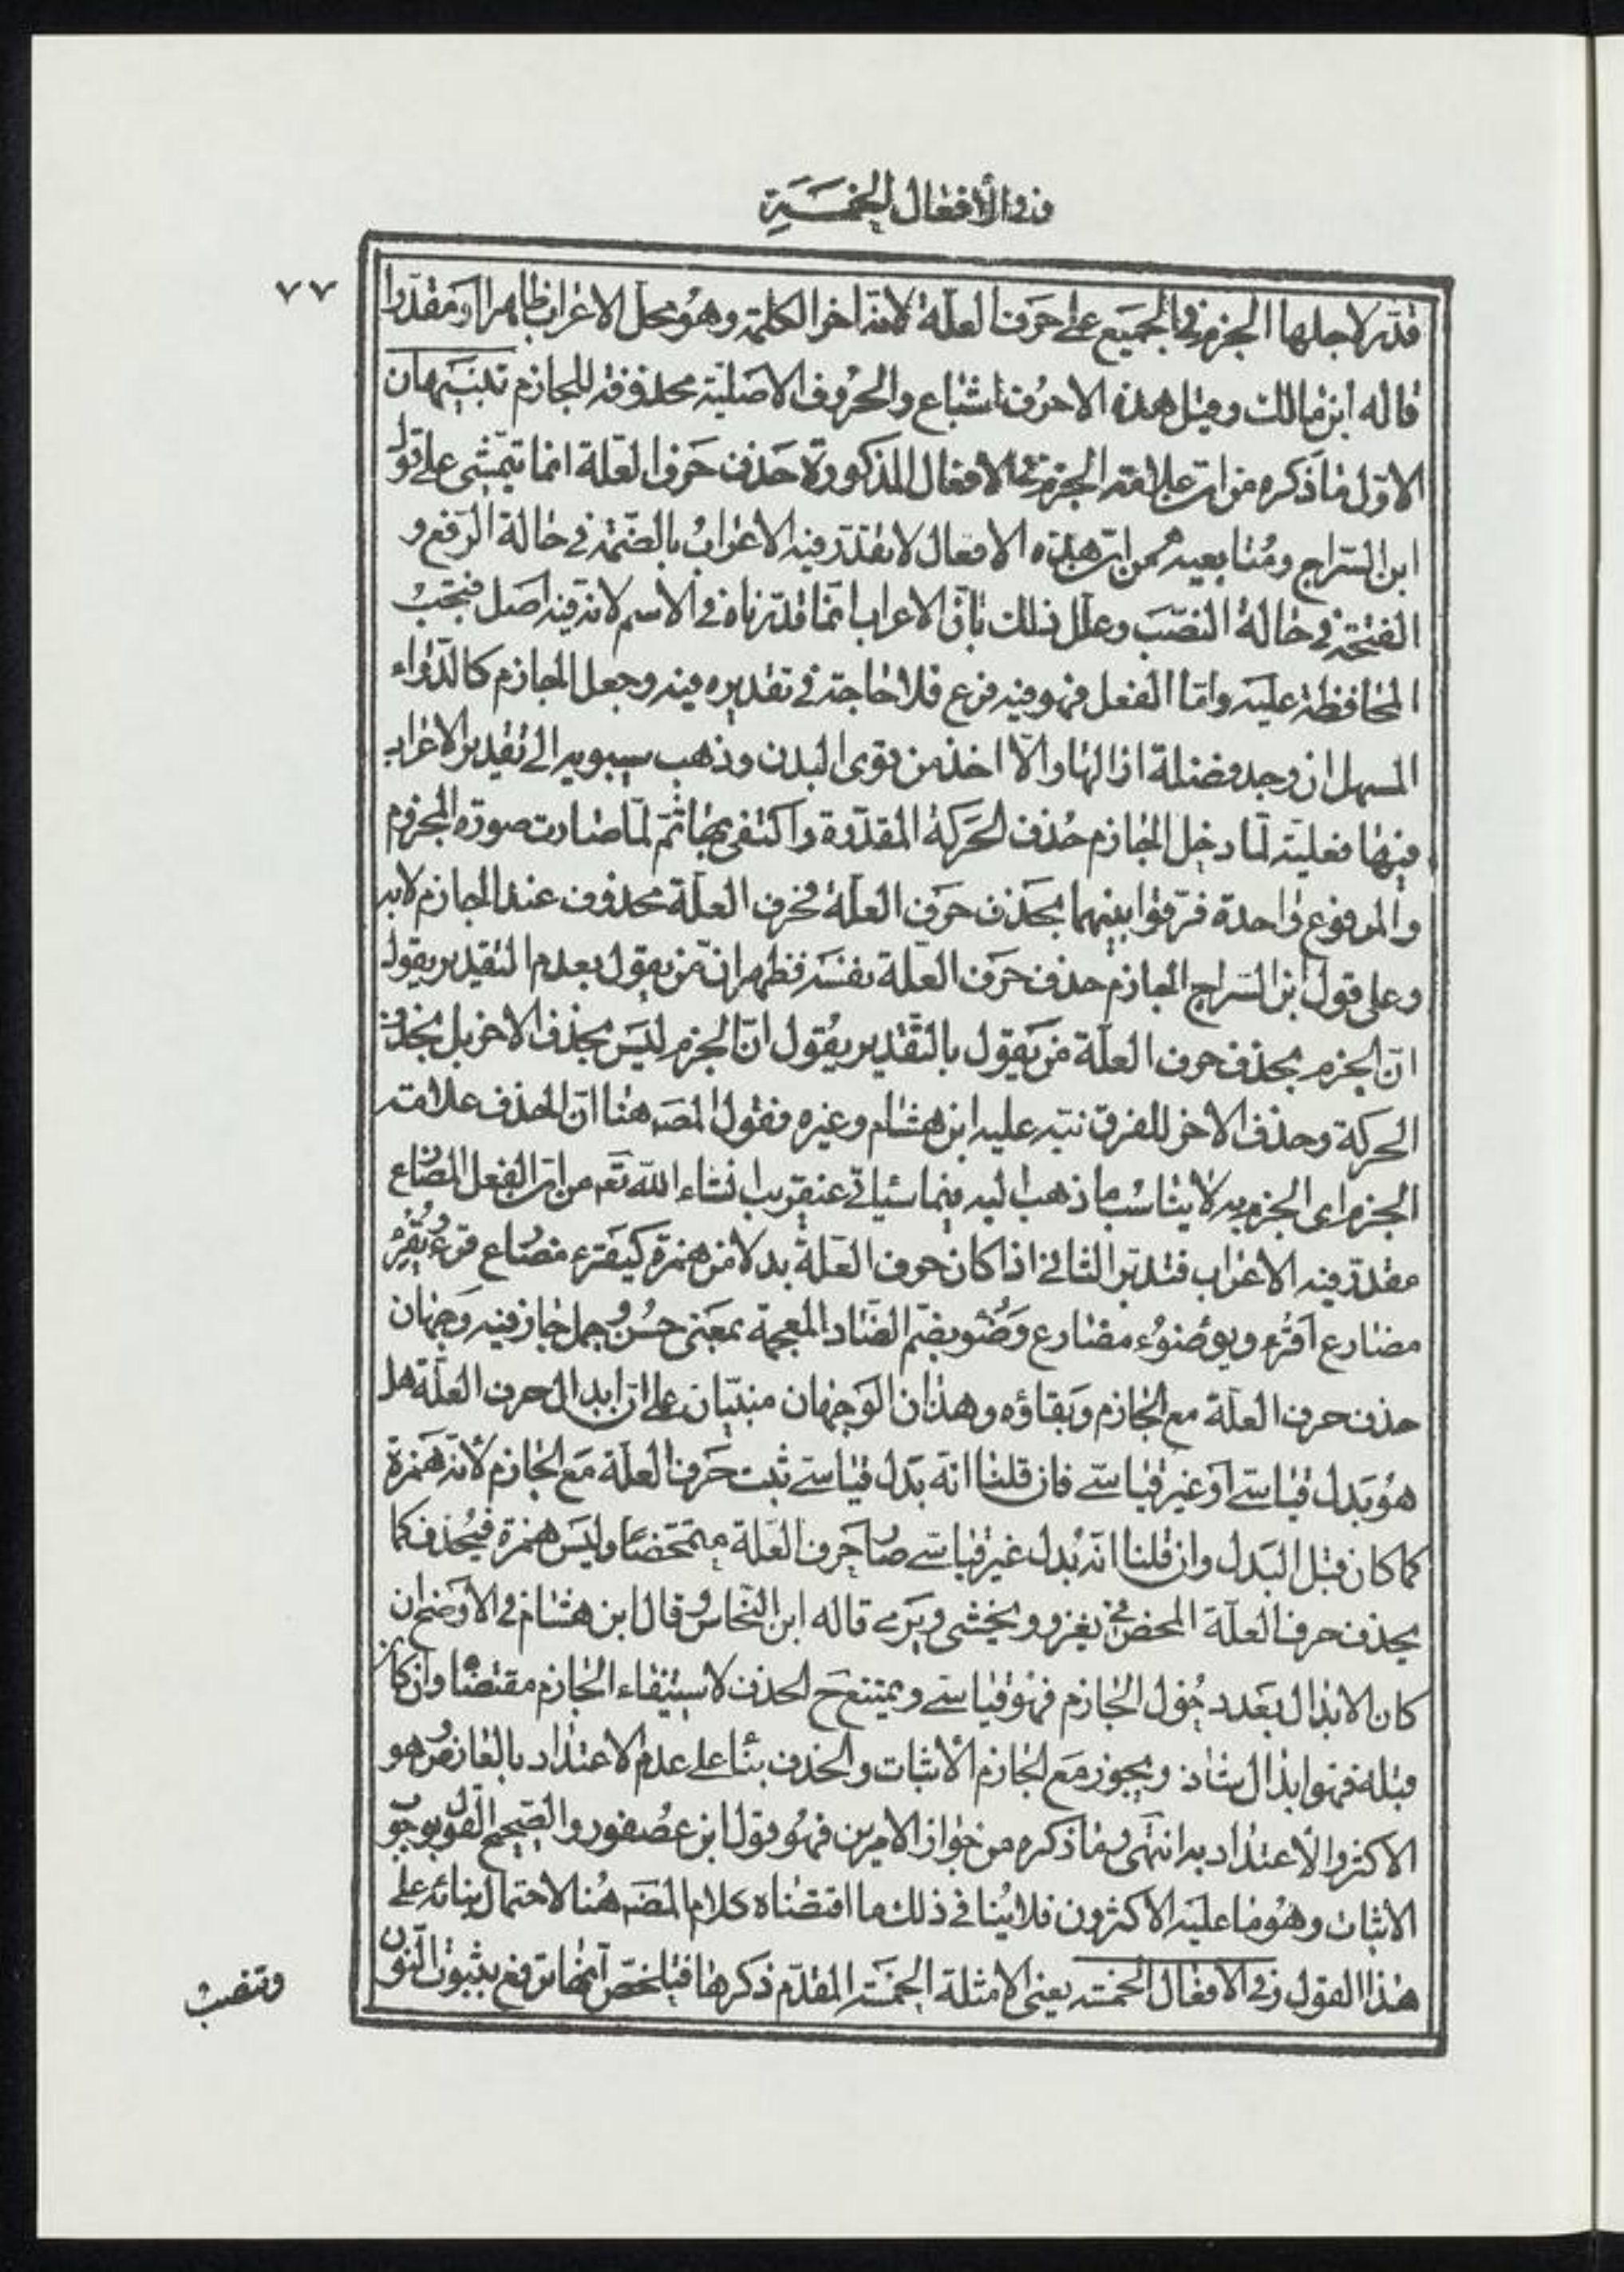 وفى الأفعال الخمسة
٧٧
قدّر لاجلها الجزم فى الجميع على حرف العلّة لانّه اخر الكلمة وهو محل الاعراب ظاهرا ومقدّرا
قاله ابن مالك وقيل هذه الاحرف اشباع والحروف الاصليّة محذوفة للجازم تنبيهان
الاوّل ما ذكره من ان علامة الجزم فى الافعال المذكورة حذف حرف العلّة انما يتمشى على قول
ابن السّراج ومتابعيه من ان هذه الافعال لا يقدّر فيه الاعراب بالضّمة فى حالة الرّفع و
الفتحة فى حالة النصب وعلل ذلك بانّ الاعراب انما قدّرناه فى الاسم لانّه فيه اصل فتجب
المحافظة عليه وامّا الفعل فهو فيه فرع فلا حاجة فى تقديره فيه وجعل الجازم كالدّواء
المسهل ان وجد فضلة ازالها والّا اخذ من قوى البدن وذهب سيبويه الى تقدير الاعراب
فيها فعليه لمّا دخل الجازم حذف الحركة المقدّرة واكتفى بها ثمّ لمّا صارت صورة المجزوم
والمرفوع واحدة فرّقوا بينهما بحذف حرف العلّة فحرف العلّة محذوف عند الجازم لا به
وعلى قول ابن السّراج الجازم حذف حرف العلّة نفسه فظهر انّ من يقول بعدم التقدير يقول
انّ الجزم بحذف حرف العلّة من يقول بالتّقدير يقول انّ الجزم ليس بحذف الاخر بل بحذف
الحركة وحذف الاخر للفرق نبّه عليه ابن هشام وغيره فقول المصه هنا انّ الحذف علامة
الجزم اى الجزم به لا يناسب ما ذهب اليه فيما سياتى عنقريب انشاء الله تعه من ان الفعل المضارع
مقدّر فيه الاعراب فتدبّر الثانى اذا كان حرف العلّة بدلا من همزة كيقرء مضارع قرء ويقرئ
مضارع اقرء ويوضوء مضارع وضوء بضمّ الضاد المعجمة بمعنى حسن وجمل جاز فيه وجهان
حذف حرف العلّة مع الجازم وبقاؤه وهذان الوجهان مبنيّان على ان ابدال حرف العلّة هل
هو بدل قياسىّ او غير قياسىّ فان قلنا انّه بدل قياسىّ ثبت حرف العلّة مع الجازم لأنّه همزة
كما كان قبل البدل وان قلنا انّه بدل غير قياسىّ صار حرف العلّة متمحضا وليس همزة فيحذف كما
يحذف حرف العلّة المحض فى يغزو ويخشى ويرمى قاله ابن النحّاس وقال ابن هشام فى الأوضح ان
كان الابدال بعد دخول الجازم فهو قياسىّ ويمتنع ح الحذف لاستيفاء الجازم مقتضاه وان كان
قبله فهو ابدال شاذ ويجوز مع الجازم الأثبات والحذف بناء على عدم الاعتداد بالعارض وهو
الاكثر والأعتداد به انتهى وما ذكره من جواز الامرين فهو قول ابن عصفور والصّحيح القول بوجوب
الاثبات وهو ما عليه الاكثرون فلا ينافى ذلك ما اقتضاه كلام المصه هنا لاحتمال بنائه على
هذا القول وفى الافعال الخمسة يعنى الامثلة الخمسة المقدّم ذكرها فتلخص انّها ترفع بثبوت النّون
وتنصب